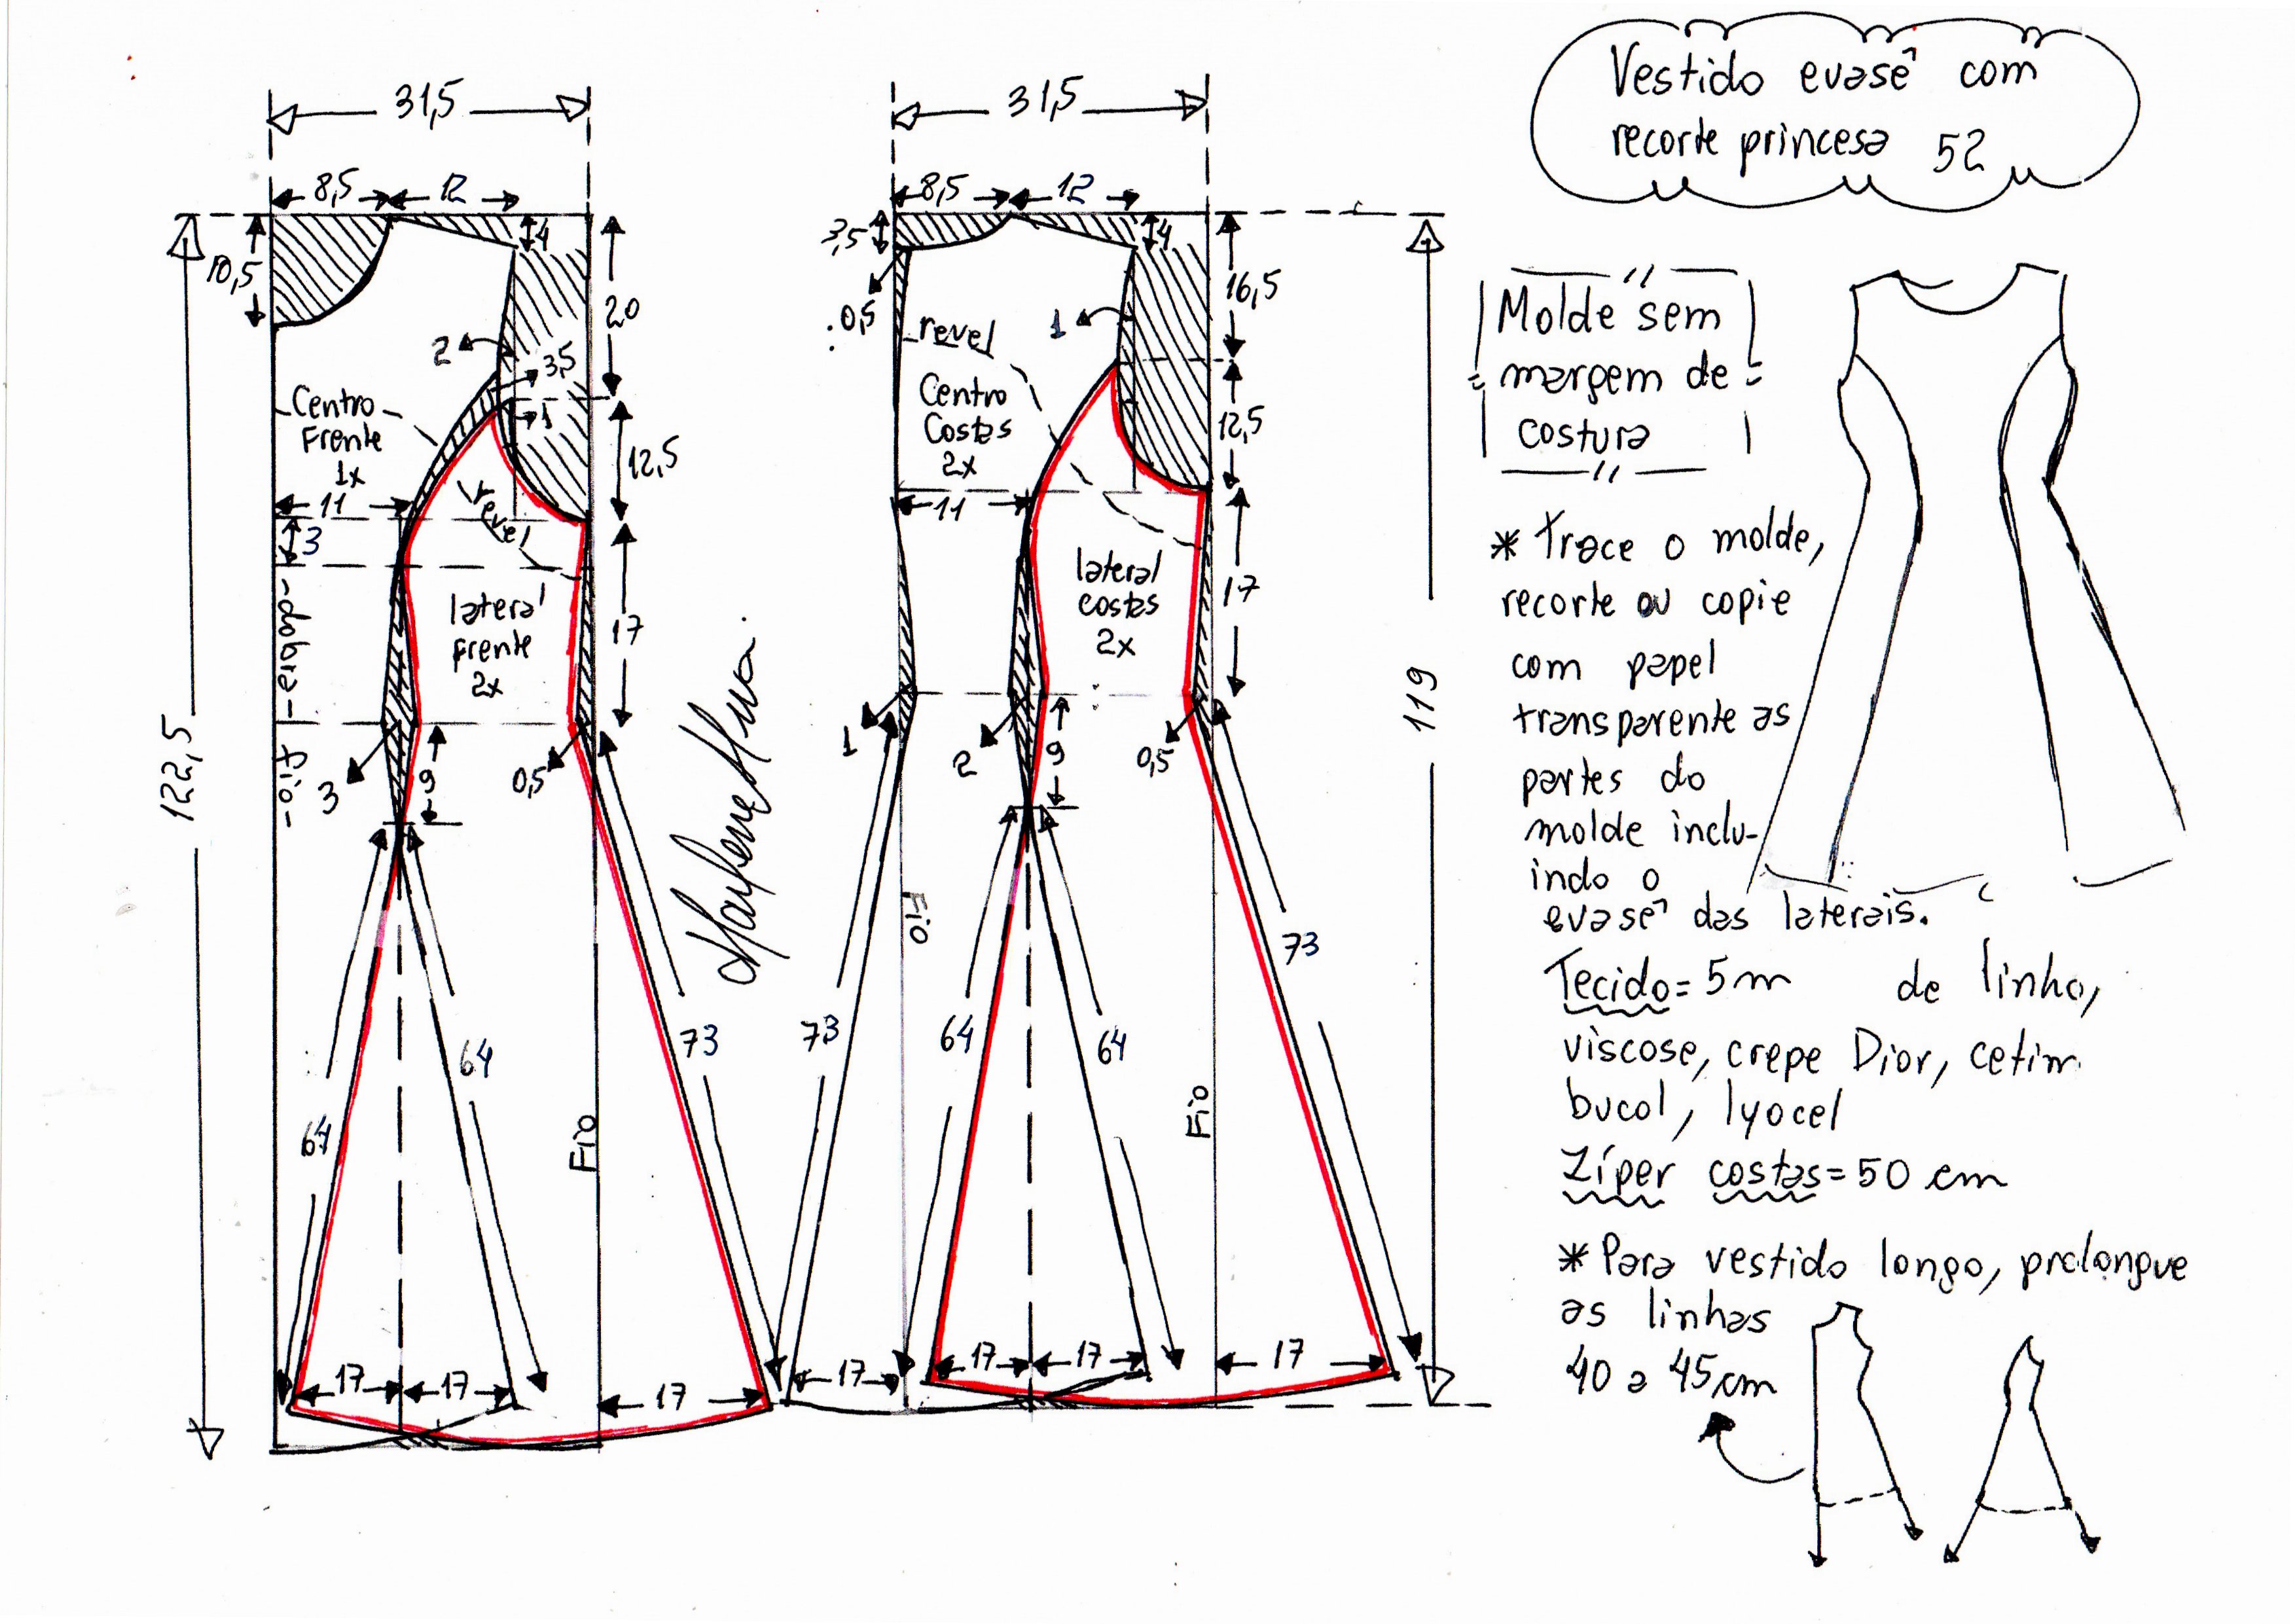 Vestido evasê com
recorte princesa 52
31,5
8,5
12
4
10,5
20
2
3,5
1
Centro
Frente
1x
12,5
11
3
revel
dobra
fio
lateral
frente
2x
17
3
9
0,5
122,5
64
64
73
Fio
17
17
17
31,5
8,5
12
3,5
4
0,5
16,5
revel
1
Centro
Costas
2x
12,5
11
lateral
costas
2x
17
1
2
9
0,5
119
Fio
73
64
64
73
Fio
17
17
17
17
Molde sem
margem de
costura
* Trace o molde,
recorte ou copie
com papel
transparente as
partes do
molde inclu-
indo o
evasê das laterais.
Tecido= 5m de linho,
viscose, crepe Dior, cetim
bucol, lyocel
Zíper costas= 50 cm
* Para vestido longo, prolongue
as linhas
40 a 45cm